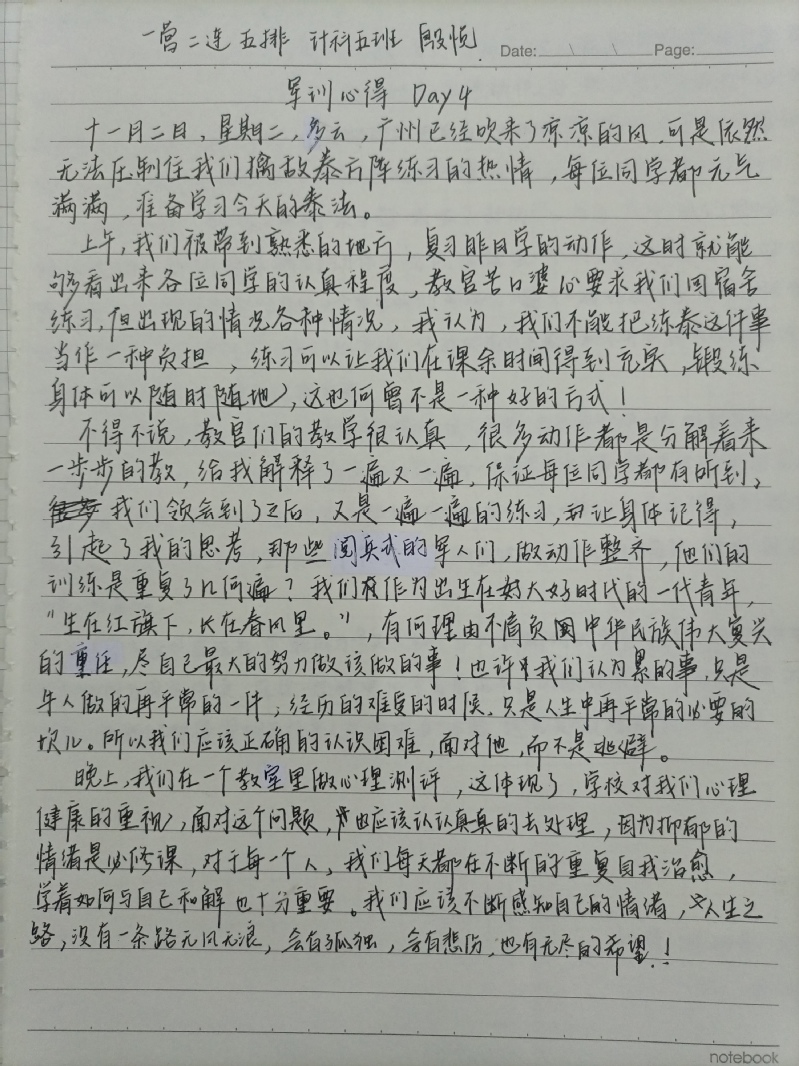 一营二连五排 计科五班 殷悦
Date: Page:
军训心得 Day 4
十一月二日，星期二，多云，广州已经吹来了凉凉的风，可是依然
无法压制住我们擒敌拳方阵练习的热情，每位同学都元气
满满，准备学习今天的拳法。
上午，我们被带到熟悉的地方，复习昨日学的动作，这时就能
够看出来各位同学的认真程度，教官苦口婆心要求我们回宿舍
练习，但出现的情况各种情况，我认为，我们不能把练拳这件事
当作一种负担，练习可以让我们在课余时间得到充实，锻练
身体可以随时随地，这也何曾不是一种好的方式！
不得不说，教官们的教学很认真，很多动作都是分解着来
一步步的教，给我解释了一遍又一遍，保证每位同学都有听到，
我们领会到了之后，又是一遍一遍的练习，让身体记得，
引起了我的思考，那些阅兵式的军人们，做动作整齐，他们的
训练是重复了几何遍？我们作为出生在大好时代的一代青年，
“生在红旗下，长在春风里。”，有何理由不肩负中华民族伟大复兴
的重任，尽自己最大的努力做该做的事！也许我们认为累的事，只是
牛人做的再平常的一件；经历的难受的时候，只是人生中再平常的必要的
坎儿。所以我们应该正确的认识困难，面对他，而不是逃避。
晚上，我们在一个教室里做心理测评，这体现了，学校对我们心理
健康的重视，面对这个问题，也应该认认真真的去处理，因为抑郁的
情绪是必修课，对于每一个人，我们每天都在不断的重复自我治愈，
学着如何与自己和解也十分重要。我们应该不断感知自己的情绪，人生之
路，没有一条路无风无浪，会有孤独，会有悲伤，也有无尽的希望！
notebook